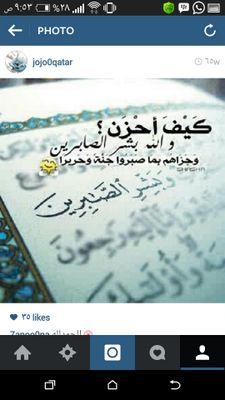 ٩:٥٣ ص
٢٨%
PHOTO
jojo0qatar
٦٥w
كَيْفَ أحْزَن ؟
و الله بشر الصابرين
وَجَزَاهُم بِمَا صَبَرُوا جَنَّةً وَحَرِيرًا
وَبَشِّرِ ٱلصَّٰبِرِينَ
٣٥ likes